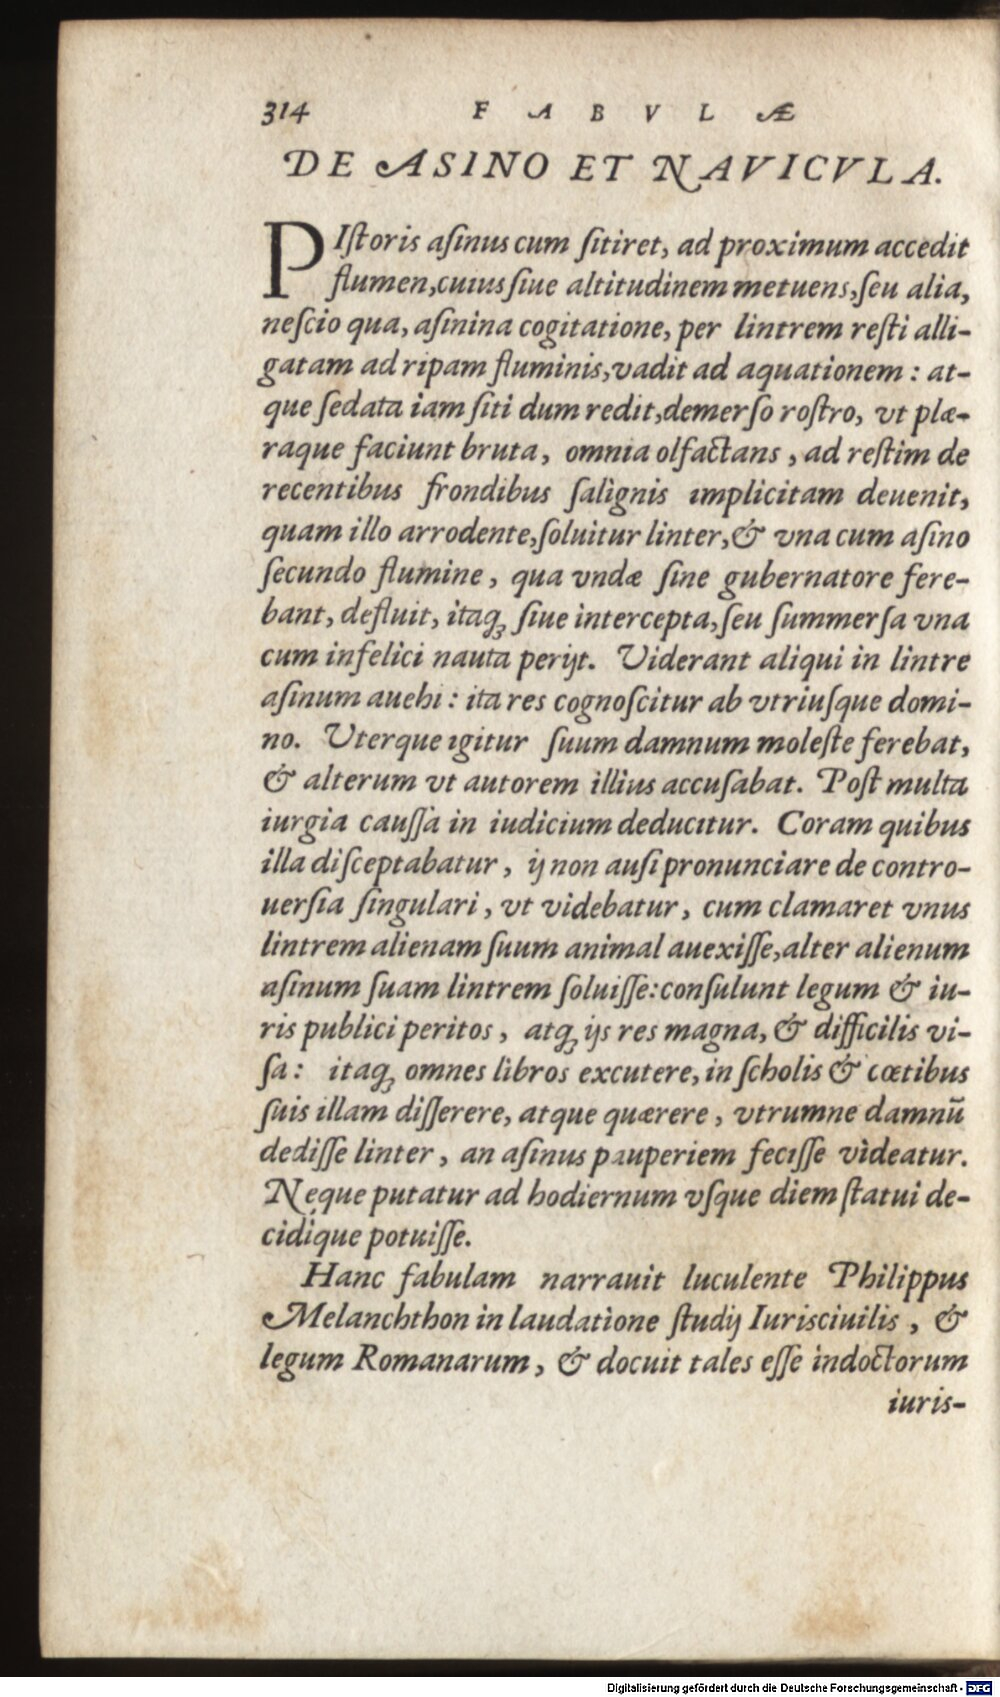 314 F A B V L Æ
DE ASINO ET NAVICVLA.
PIſtoris aſinus cum ſitiret, ad proximum accedit
flumen,cuius ſiue altitudinem metuens,ſeu alia,
neſcio qua, aſinina cogitatione, per lintrem reſti alli-
gatam ad ripam fluminis,vadit ad aquationem : at-
que ſedata iam ſiti dum redit,demerſo roſtro, vt plæ-
raque faciunt bruta, omnia olfactans , ad reſtim de
recentibus frondibus ſalignis implicitam deuenit,
quam illo arrodente,ſoluitur linter,& vna cum aſino
ſecundo flumine , qua vndæ ſine gubernatore fere-
bant, defluit, itaq; ſiue intercepta,ſeu ſummerſa vna
cum infelici nauta perijt. Viderant aliqui in lintre
aſinum auehi : ita res cognoſcitur ab vtriuſque domi-
no. Vterque igitur ſuum damnum moleſte ferebat,
& alterum vt autorem illius accuſabat. Poſt multa
iurgia cauſſa in iudicium deducitur. Coram quibus
illa diſceptabatur , ij non auſi pronunciare de contro-
uerſia ſingulari , vt videbatur, cum clamaret vnus
lintrem alienam ſuum animal auexiſſe,alter alienum
aſinum ſuam lintrem ſoluiſſe:conſulunt legum & iu-
ris publici peritos , atq; ijs res magna, & difficilis vi-
ſa : itaq; omnes libros excutere, in ſcholis & cœtibus
ſuis illam diſſerere, atque quærere , vtrumne damnū
dediſſe linter , an aſinus pauperiem feciſſe videatur.
Neque putatur ad hodiernum vſque diem ſtatui de-
cidique potuiſſe.
Hanc fabulam narrauit luculente Philippus
Melanchthon in laudatione ſtudij Iurisciuilis , &
legum Romanarum, & docuit tales eſſe indoctorum
iuris-
Digitalisierung gefördert durch die Deutsche Forschungsgemeinschaft - DFG